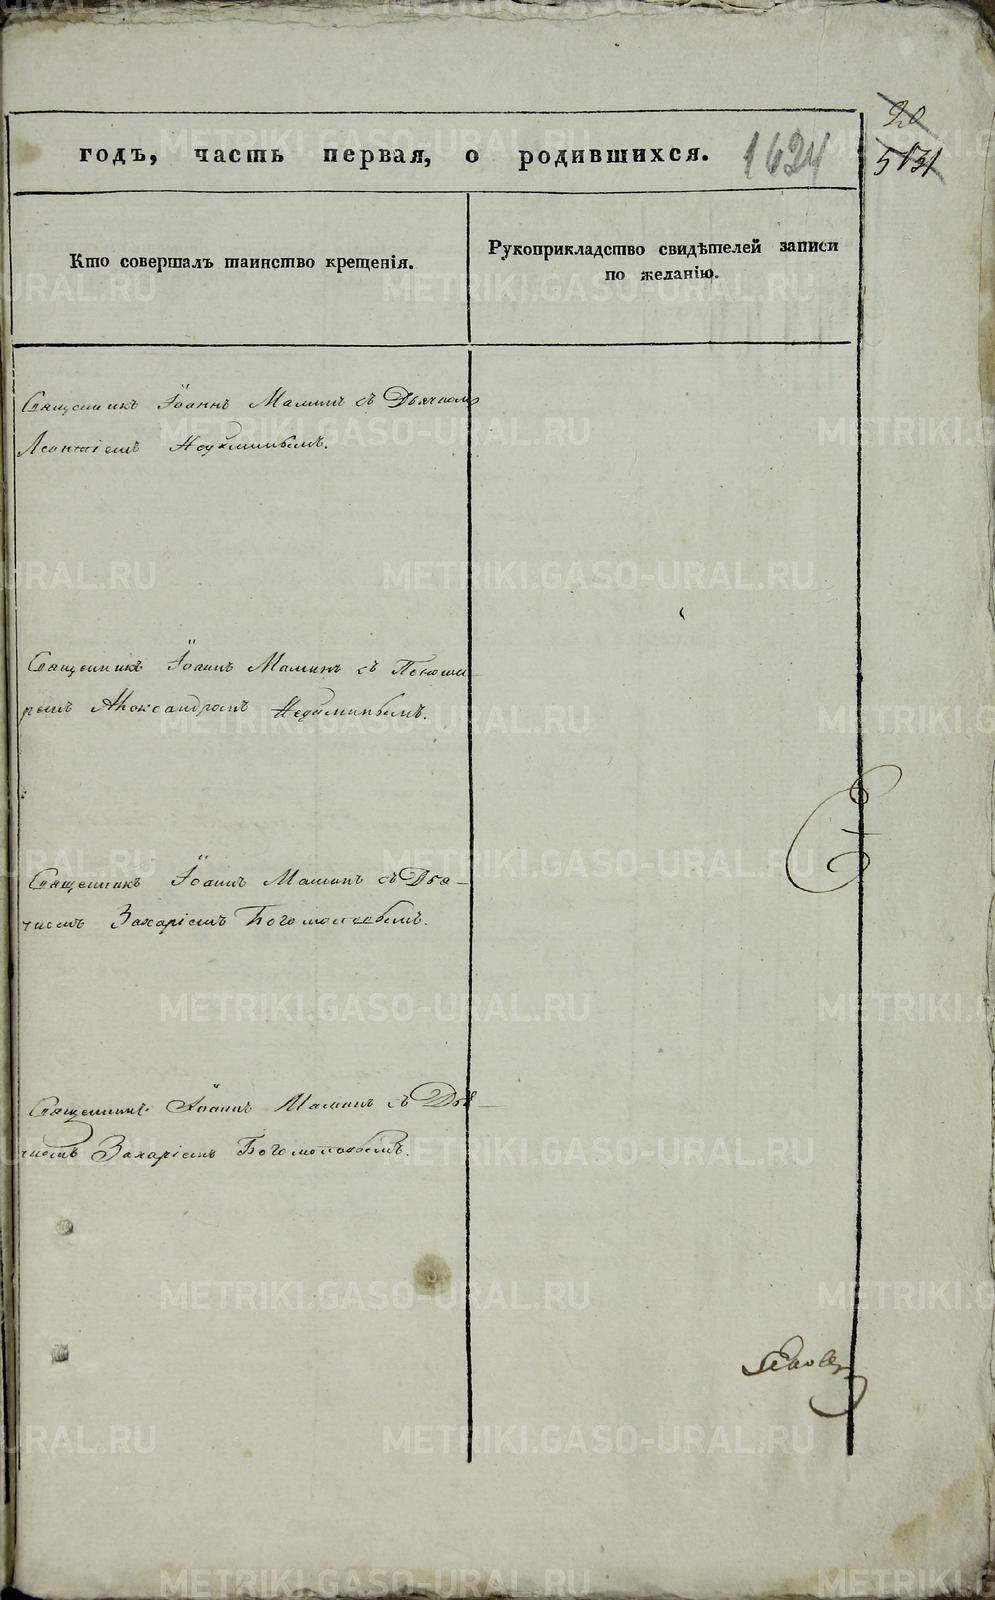 годъ, часть первая, о родившихся. 1624
20
5131
Кто совершалъ таинство крещенія.
Рукоприкладство свидѣтелей записи
по желанію.
Священникъ Іоаннъ Маминъ съ Дьячкомъ
Леонтіемъ
Священникъ Іоаннъ Маминъ съ Поном-
ремъ Александромъ
Священникъ Іоаннъ Маминъ съ Дья-
чкомъ Захаріемъ Богомоловымъ.
Священникъ Іоаннъ Маминъ съ Дья-
чкомъ Захаріемъ Богомоловымъ.
METRIKI.GASO-URAL.RU